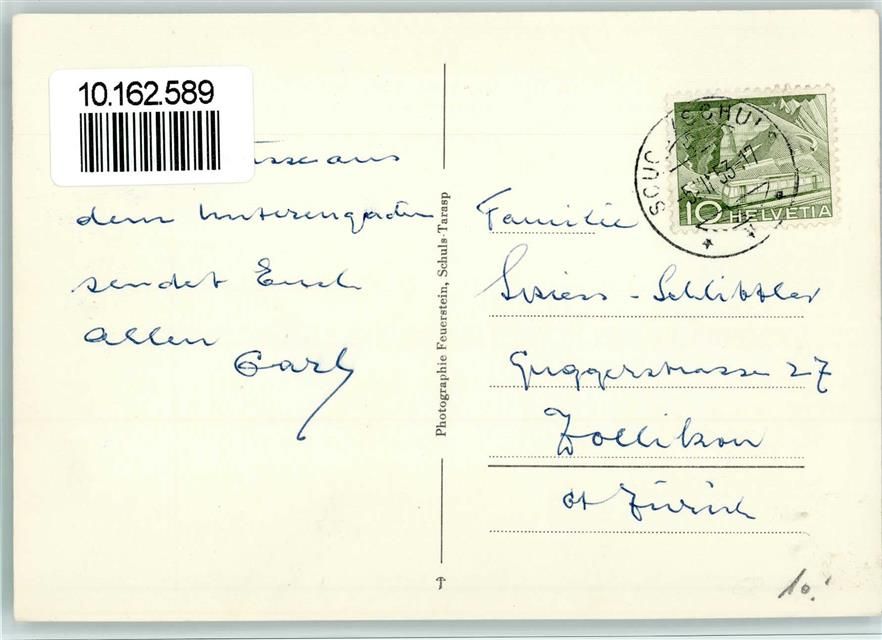 10.162.589
aus
dem Unterengadin
sendet Euch
allen
Carl
Photographie Feuerstein, Schuls-Tarasp
SCUOL SCHULS
53-17
10 HELVETIA
Familie
- Schlittler
Guggerstrasse 27
Zollikon
Kt Zürich
10.